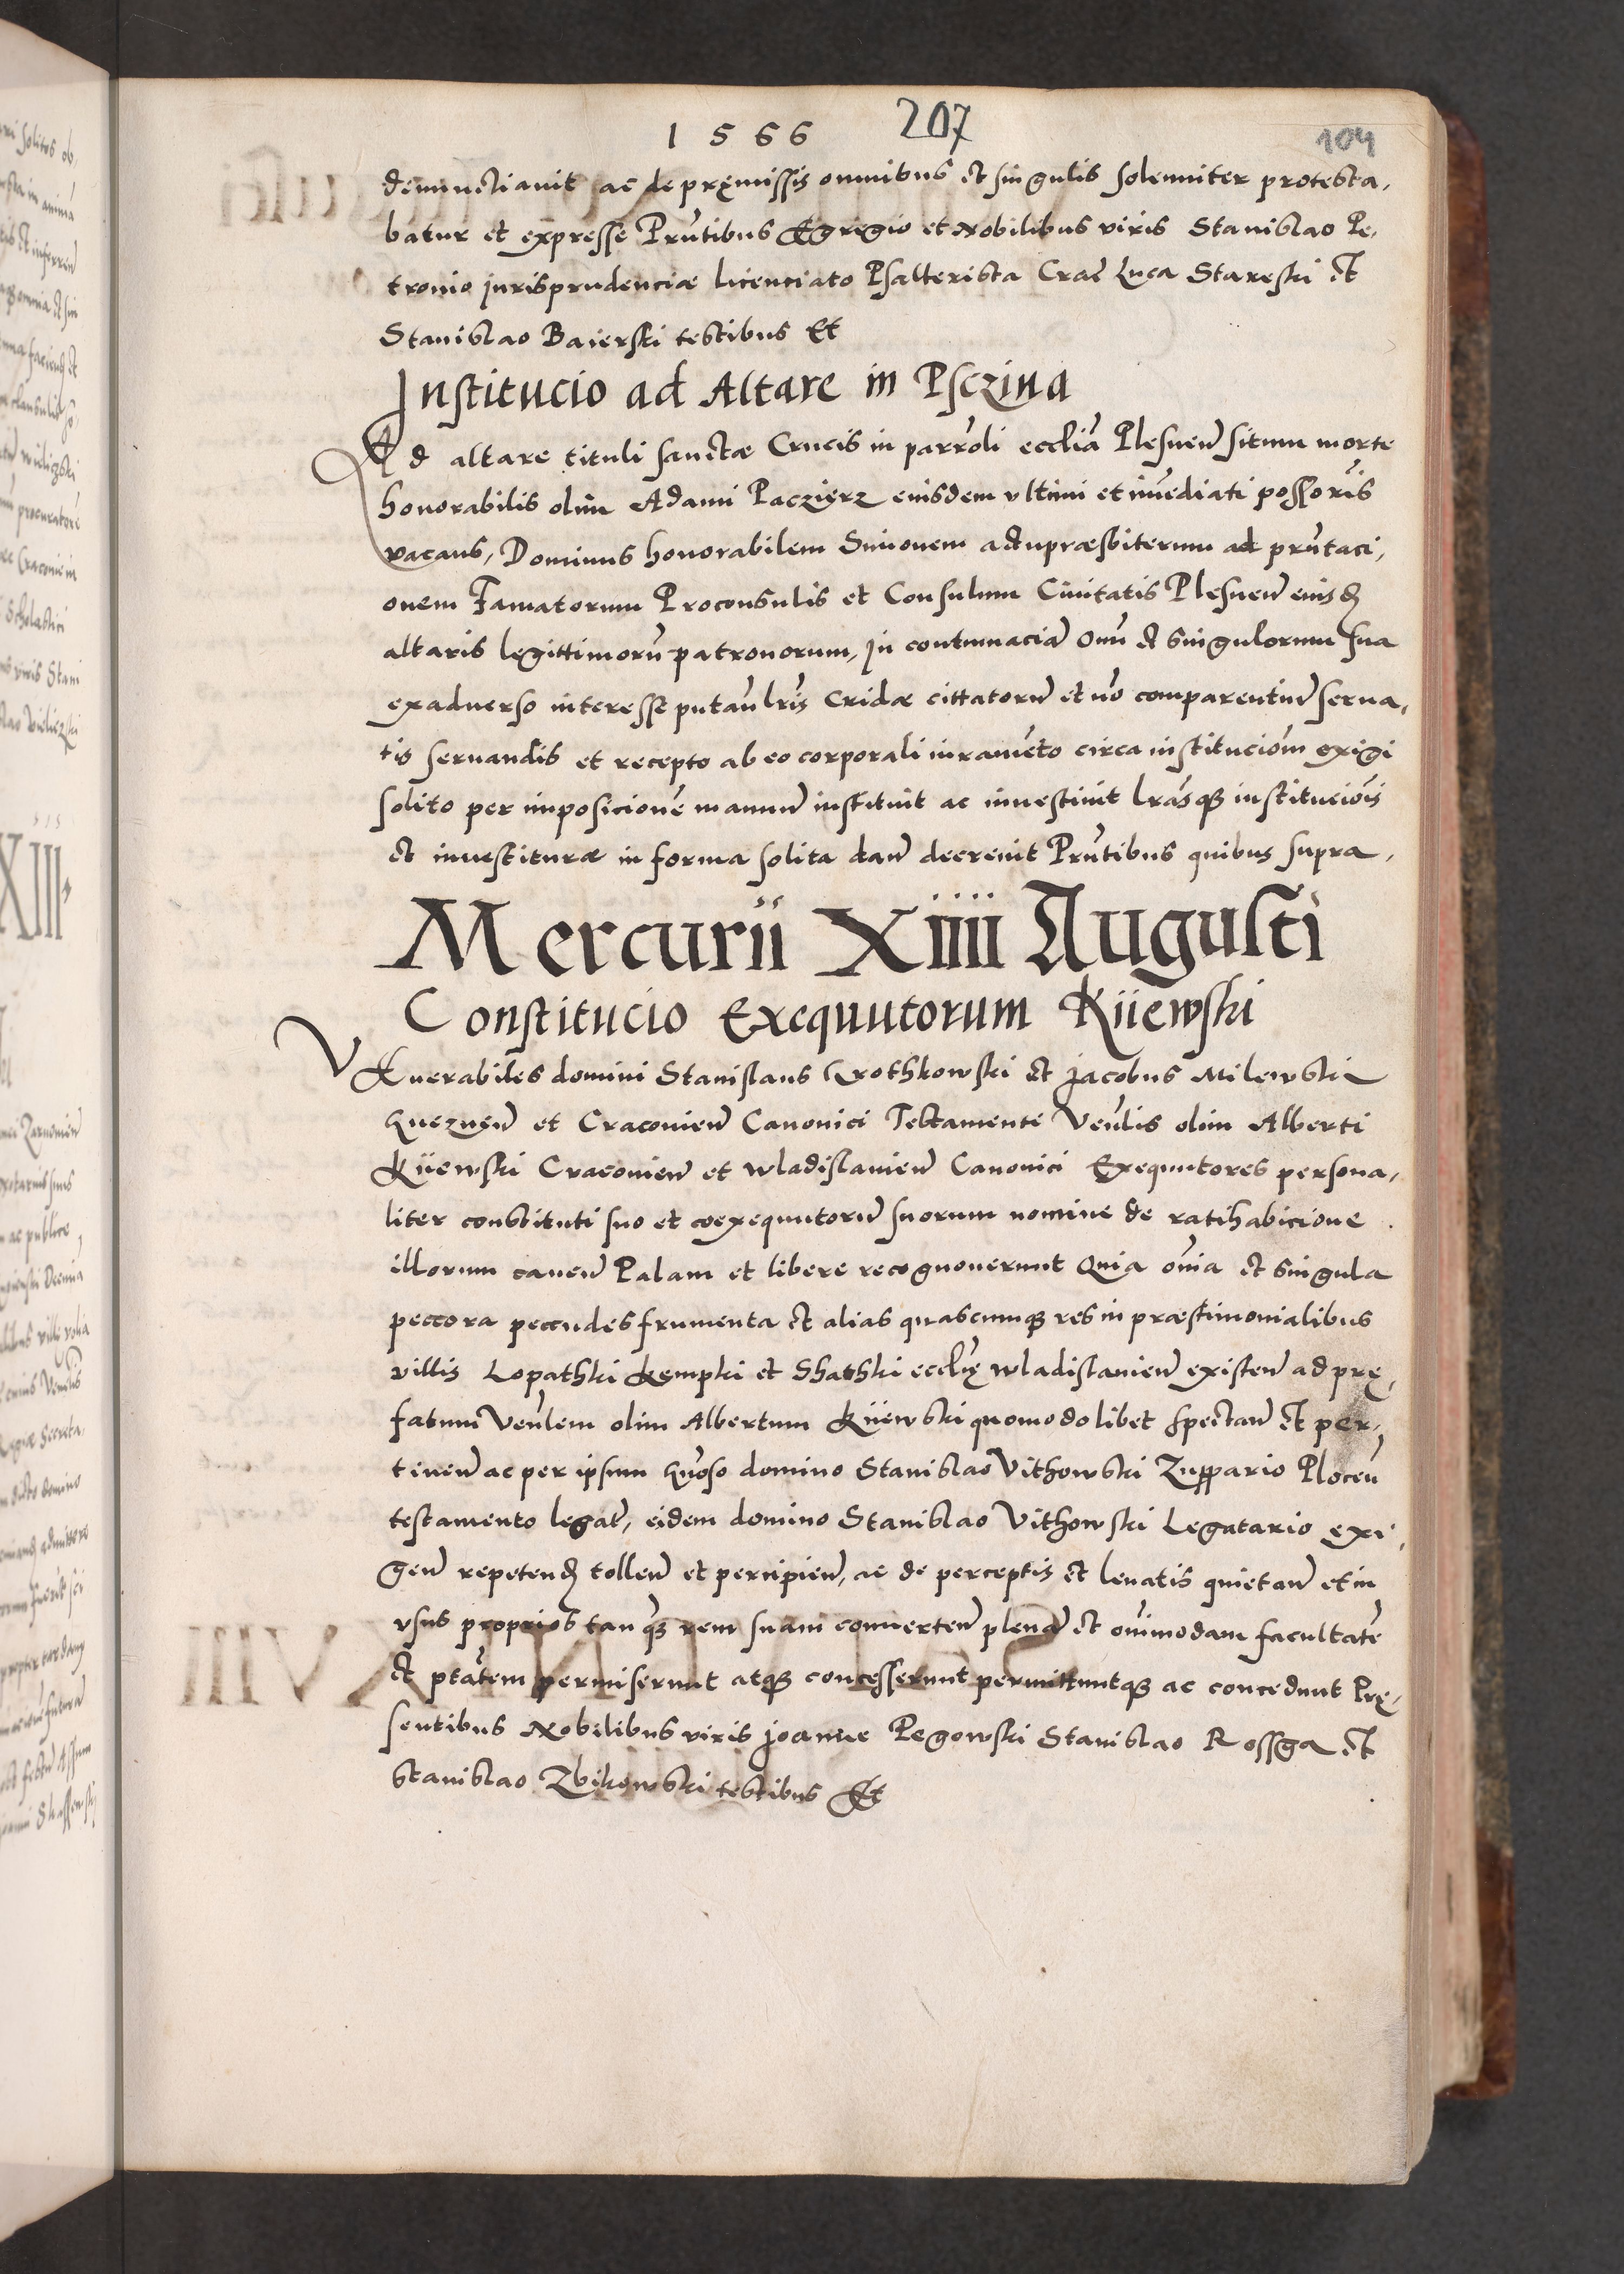 1566 207 104
denunctiavit ac de pręmissis omnibus et singulis solenniter protesta,
batur et expresse Prn̄tibus Egregio et Nobilibus viris Stanislao Pe,
tronio jurisprudenciæ licenciato Psalterista Crac̄ Luca Stareski et
Stanislao Baierski testibus Et
Institucio ad Altare in Psczina
Ad altare tituli sanctæ Crucis in parro͞li eccl̄ia Plesnen̄ situm morte
honorabilis olim Adami Paczierz eiusdem vltimi et im̄ediati posso͞ris
vacans, Dominus honorabilem Simonem actu præsbiterum ad prn̄taci,
onem Famatorum Proconsulis et Consulum Ciuitatis Plesnen̄ eiusd̄
altaris legittimorū patronorum, in contumaciā om̄ et singulorum sua
exaduerso interesse putan̄ lr̄is Cridæ cittatorū et nō comparentiū serua,
tis seruandis et recepto ab eo corporali iuramēto circa institucio͞m exigi
solito per imposicionē manuū instituit ac inuestiuit lr̄asq3 institucio͞is
et inuestituræ in forma solita dan̄ decreuit Prn̄tibus quibus supra,
Mercurii Xiiii Augusti
Constitucio Exequutorum Kiiewski
VEnerabiles domini Stanislaus Krothkowski et Jacobus Milewski
Gneznen̄ et Cracouien̄ Canonici Testamenti Ven̄lis olim Alberti
Kiiewski Cracouien̄ et Wladislauien̄ Canonici Exequutores persona,
liter constituti suo et coexequutorū suorum nomine de ratihabicione
illorum cauen̄ Palam et libere recognouerunt Quia om̄ia et singula
peccora peccudes frumenta et alias quascumq3 res in præstimonialibus
villis Lopathki Kempki et Shathki eccl̄ię Wladislauien̄ existen̄ ad prę,
fatum Ven̄lem olim Albertum Kiiewski quomodolibet spectan̄ et per,
tinen̄ ac per ipsum Gn̄oso domino Stanislao Vithowski Zuppario Plocen̄
testamento legat̄, eidem domino Stanislao Vithowski Legatario exi,
gen̄ repetend̄ tollen̄ et percipien̄, ac de perceptis et leuatis quietan̄ et in
vsus proprios tanq̄3 rem suam conuerten̄ plenā et om̄imodam facultatē
et ptātem permiserunt atq3 concesserunt permittuntq3 ac concedunt Prę,
sentibus Nobilibus viris Joanne Pegowski Stanislao Rossga et
Stanislao Zbikowski testibus Et